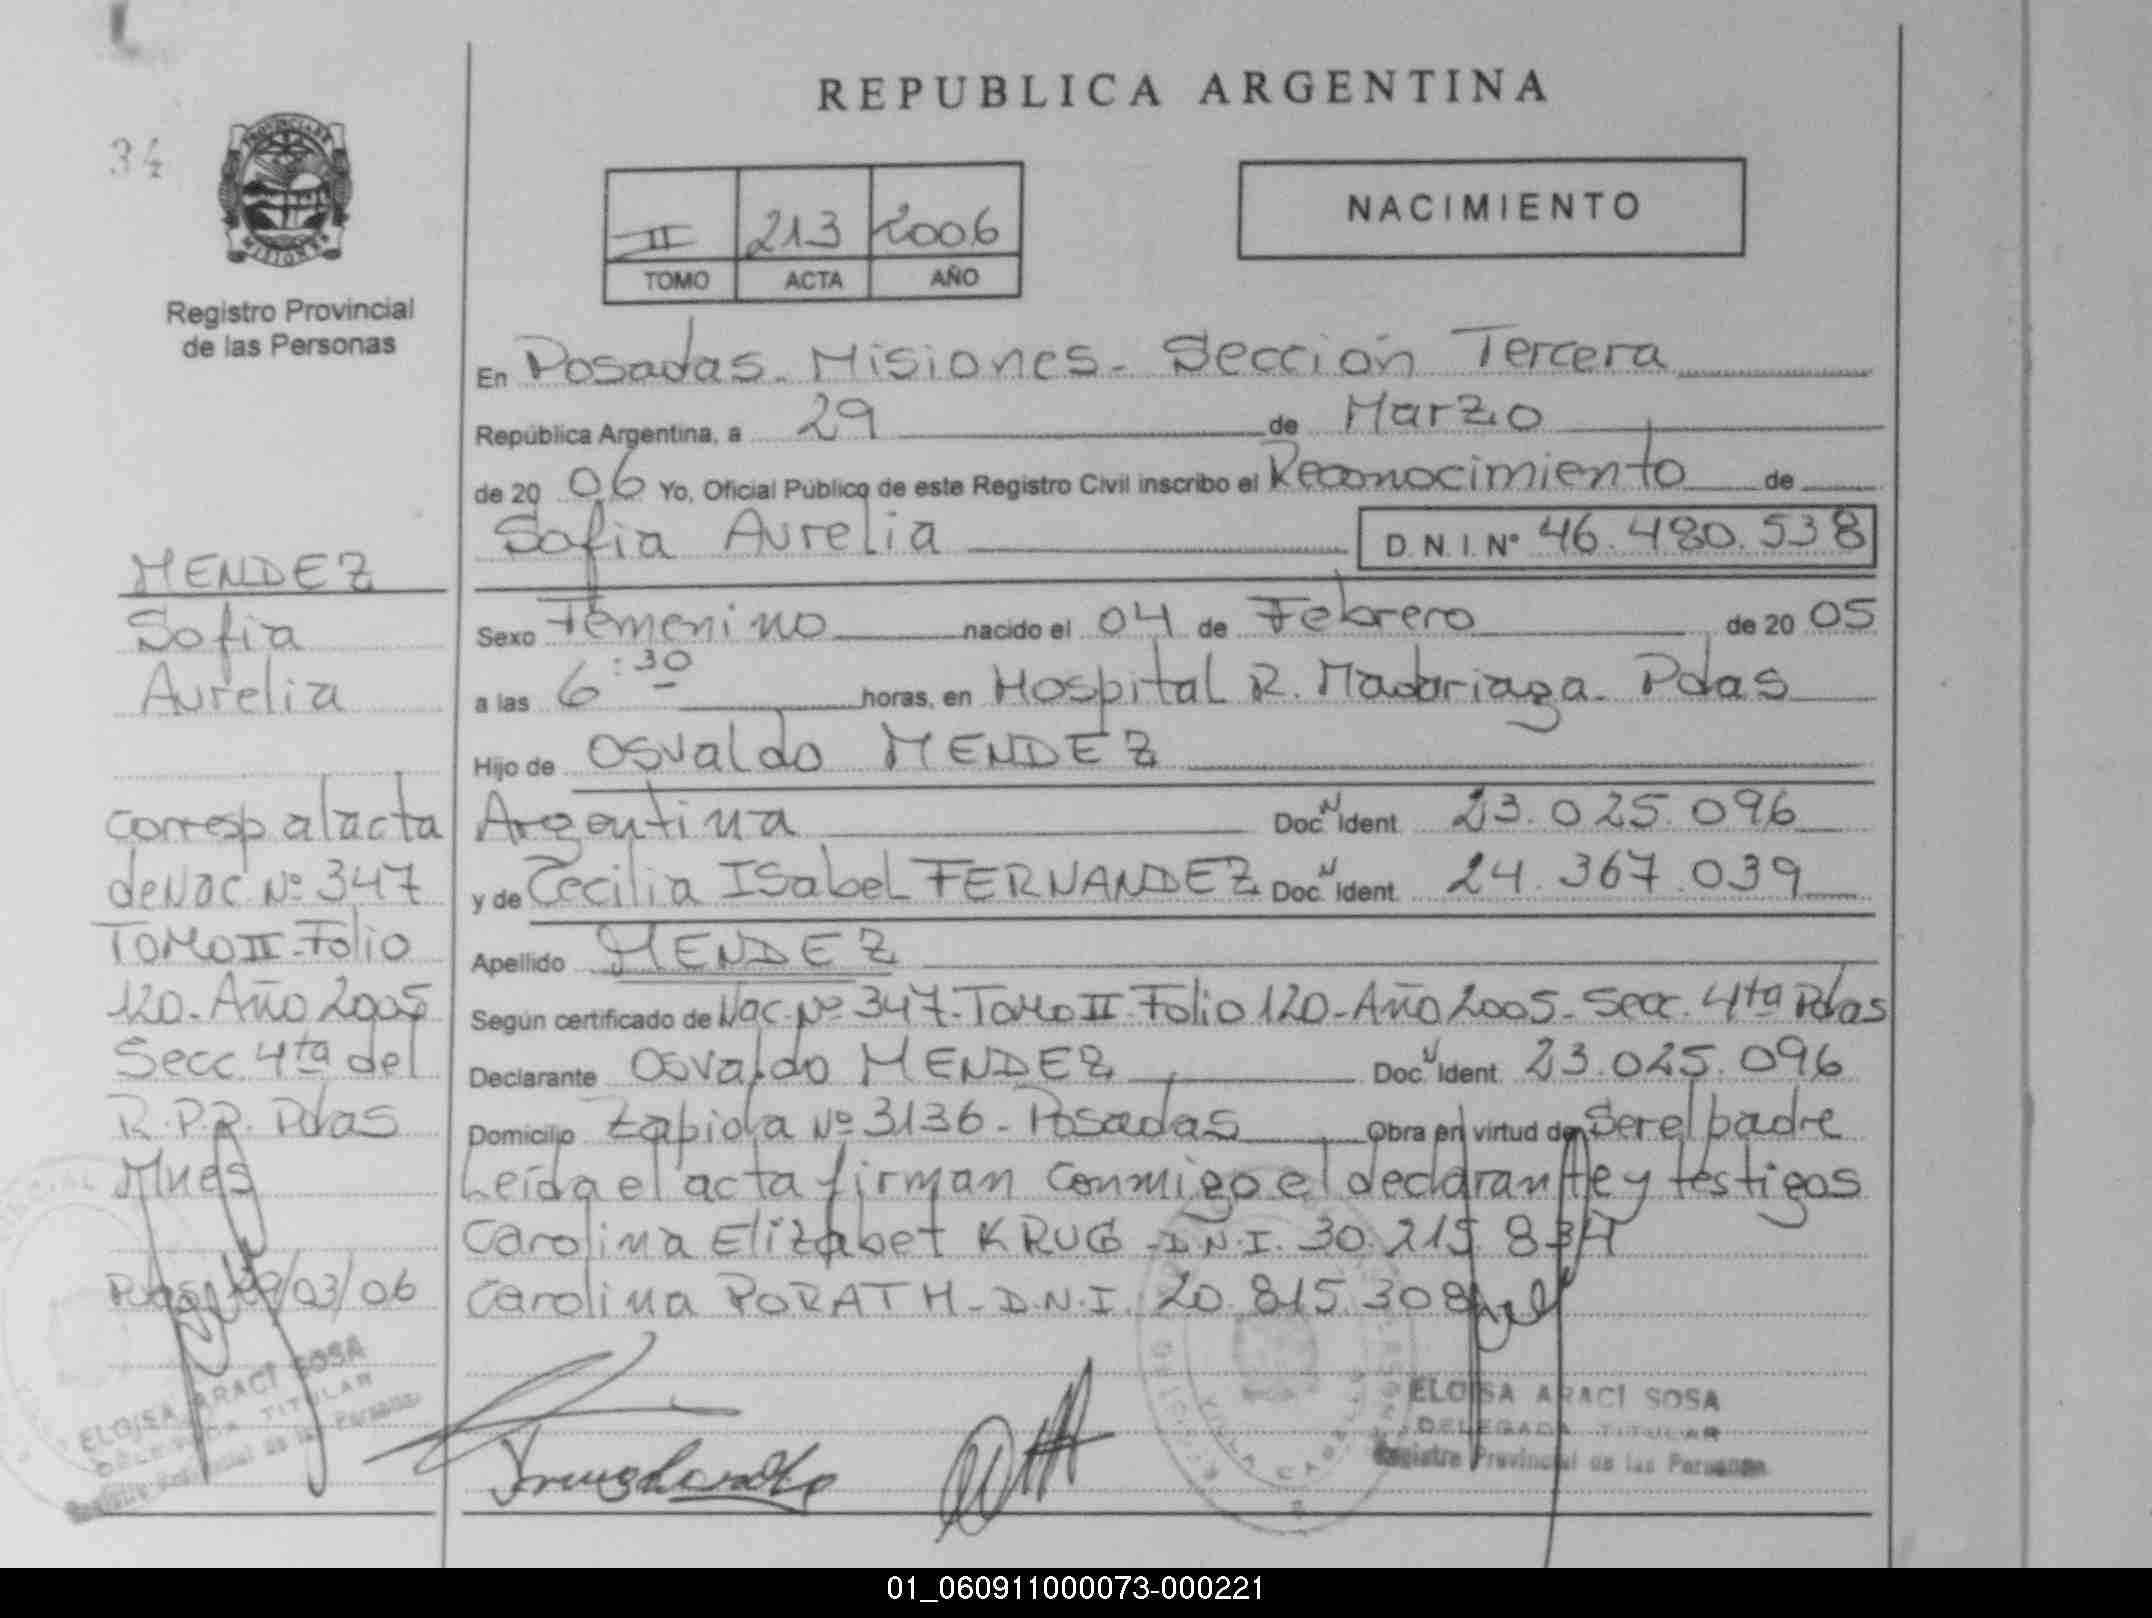 REPUBLICA ARGENTINA
34
PROVINCIA DE
MISIONES
Registro Provincial
de las Personas
II 213 2006
TOMO ACTA AÑO
NACIMIENTO
En Posadas - Misiones - Sección Tercera
República Argentina, a 29 de Marzo
de 20 06 Yo, Oficial Público de este Registro Civil inscribo el Reconocimiento de
Sofia Aurelia D.N.I. Nº 46.480.538
Sexo Femenino nacido el 04 de Febrero de 20 05
a las 6:30 horas, en Hospital R. Madariaga - Pdas
Hijo de Osvaldo MENDEZ
Argentina Doc. N Ident 23.025.096
y de Cecilia Isabel FERNANDEZ Doc. N Ident 24.367.039
Apellido MENDEZ
Según certificado de Nac. Nº 347 - Tomo II - Folio 120 - Año 2005 - Secc. 4ta Pdas
Declarante Osvaldo MENDEZ Doc. N Ident 23.025.096
Domicilio Zapiola Nº 3136 - Posadas Obra en virtud de Ser el padre
Leída el acta firman conmigo el declarante y testigos
Carolina Elizabet KRUG - D.N.I. 30.215.834
Carolina PORATH - D.N.I. 20.815.308
ELOISA ARACI SOSA
DELEGADA TITULAR
Registro Provincial de las Personas
MENDEZ
Sofia
Aurelia
corresp al acta
de Nac. Nº 347
TOMO II - Folio
120 - Año 2005
Secc. 4ta del
R.P.P. Pdas
Mnes
Pdas 29/03/06
ELOISA ARACI SOSA
DELEGADA TITULAR
Registro Provincial de las Personas
01_060911000073-000221